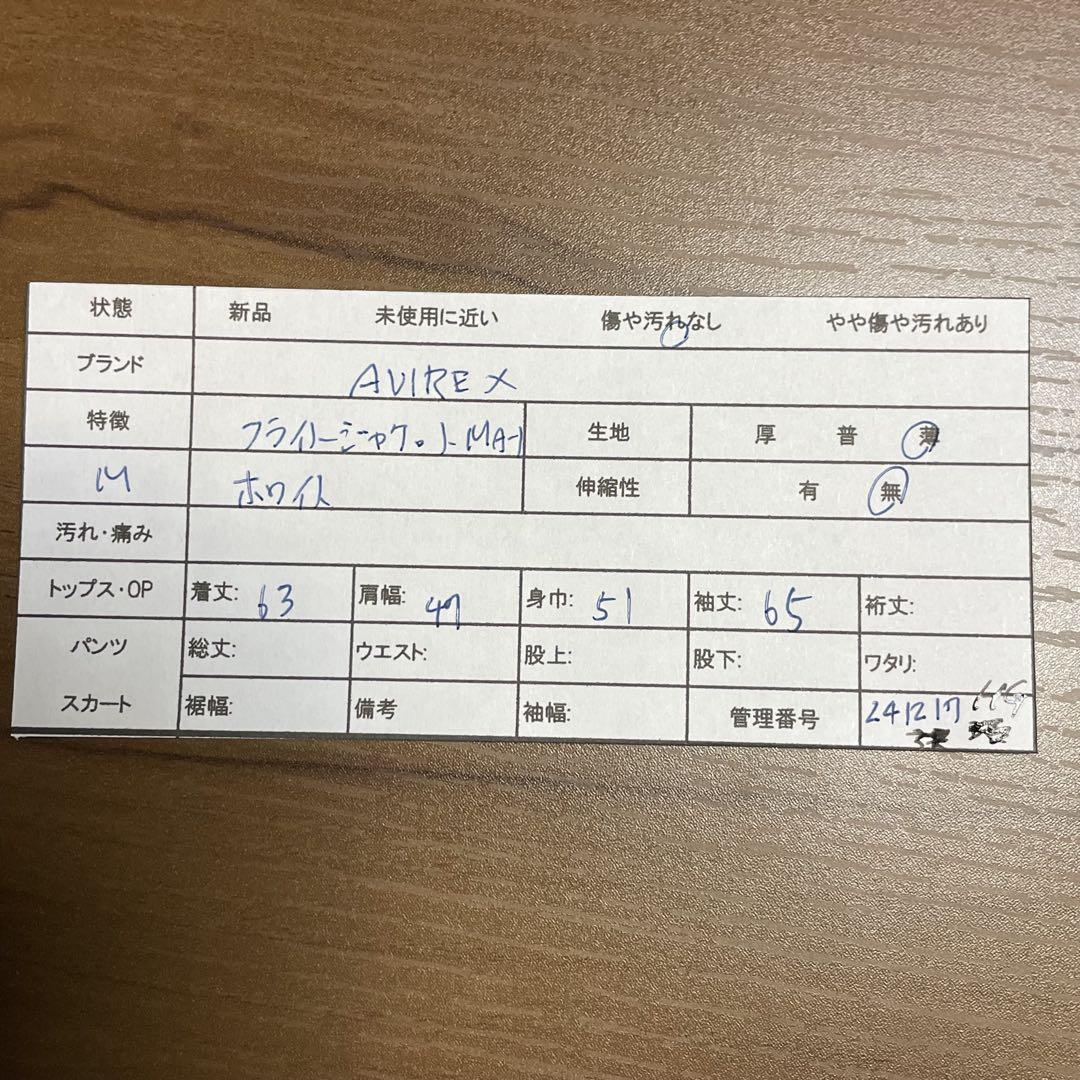 状態 新品 未使用に近い 傷や汚れなし やや傷や汚れあり
ブランド AVIREX
特徴 フライトジャケット MA-1 生地 厚 普 薄
M ホワイト 伸縮性 有 無
汚れ・痛み
トップス・OP 着丈: 63 肩幅: 47 身巾: 51 袖丈: 65 裄丈:
パンツ 総丈: ウエスト: 股上: 股下: ワタリ:
スカート 裾幅: 備考 袖幅: 管理番号 241217